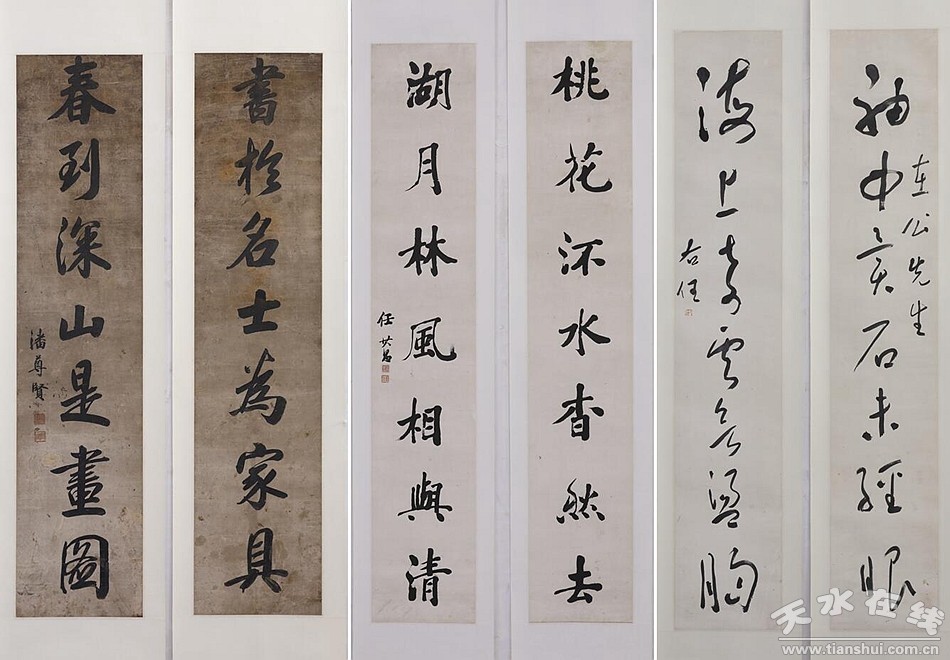 袖中異石未經眼
公先生
海上奇雲欲盪胸
右任
桃花流水杳然去
湖月林風相與清
任其昌
書於名士為家具
春到深山是畫圖
潘尊賢
天水在线
www.tianshui.com.cn